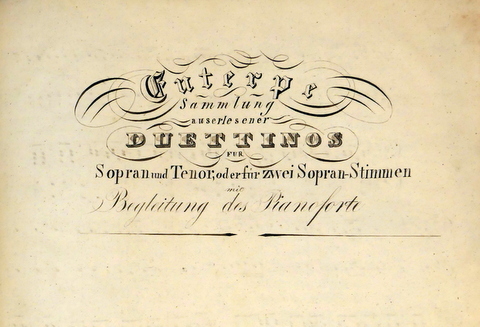 Euterpe
Sammlung
auserlesener
DUETTINOS
FÜR
Sopran und Tenor, oder für zwei Sopran-Stimmen
mit
Begleitung des Pianoforte